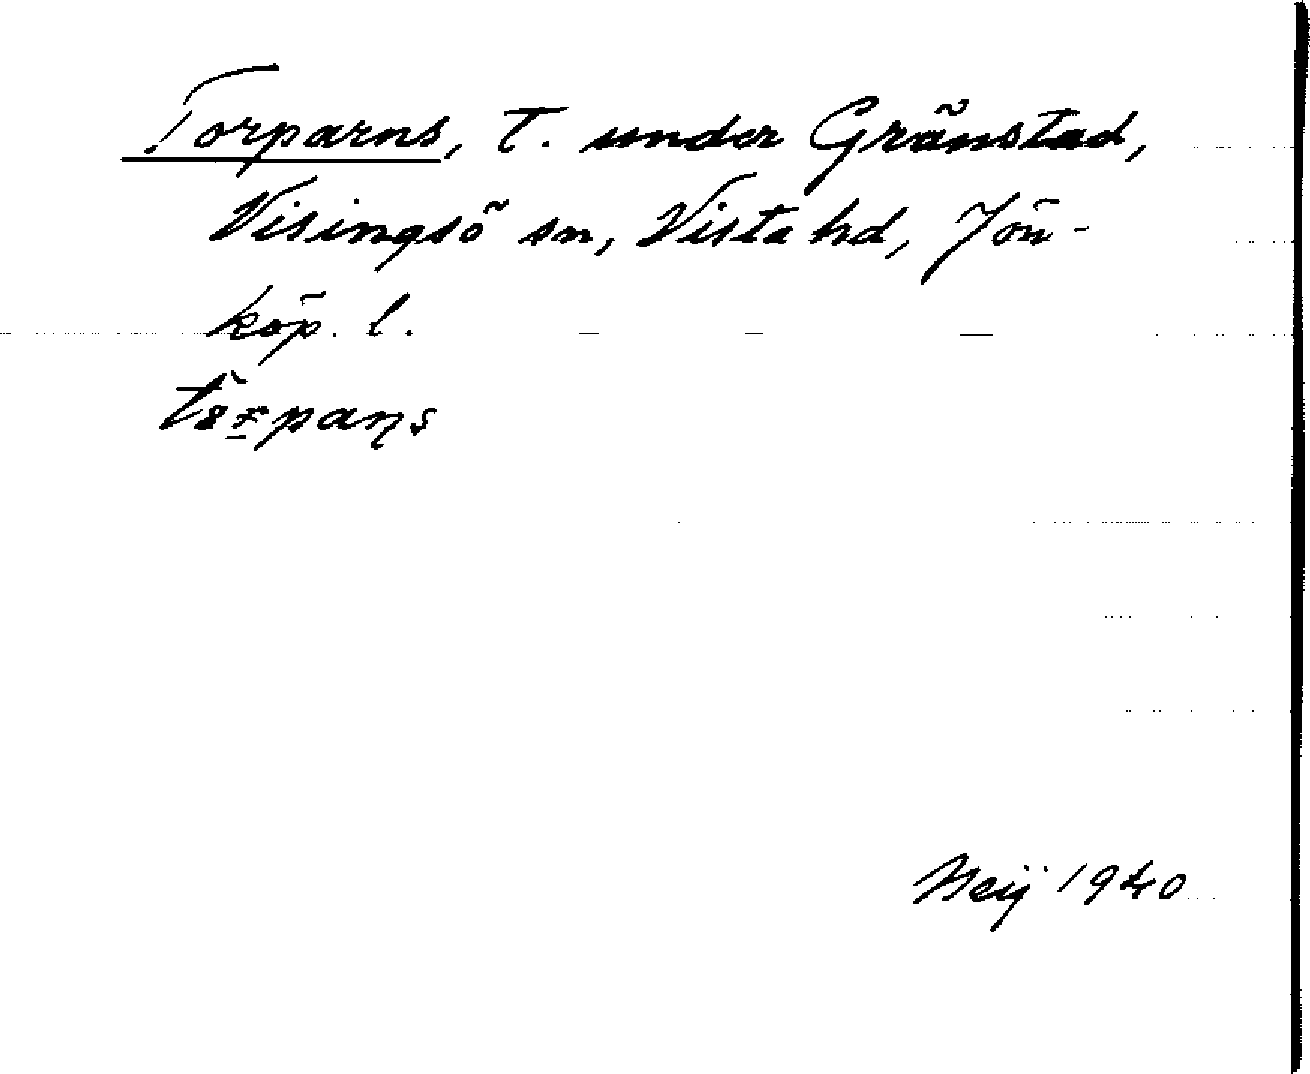 Torparns, T. under Gränstad,
Visingsö sn, Vista hd, Jön-
köp. l.
1940